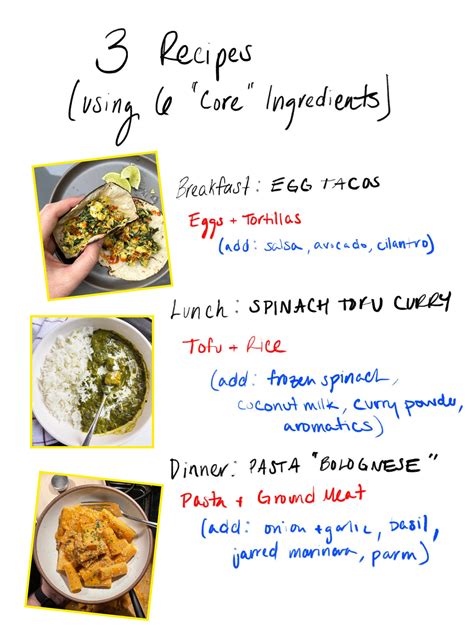 3 Recipes
(using 6 "Core" Ingredients)
Breakfast: EGG TACOS
Eggs + Tortillas
(add: salsa, avocado, cilantro)
Lunch: SPINACH TOFU CURRY
Tofu + Rice
(add: frozen spinach,
coconut milk, curry powder,
aromatics)
Dinner: PASTA "BOLOGNESE"
Pasta + Ground Meat
(add: onion + garlic, basil,
jarred marinara, parm)